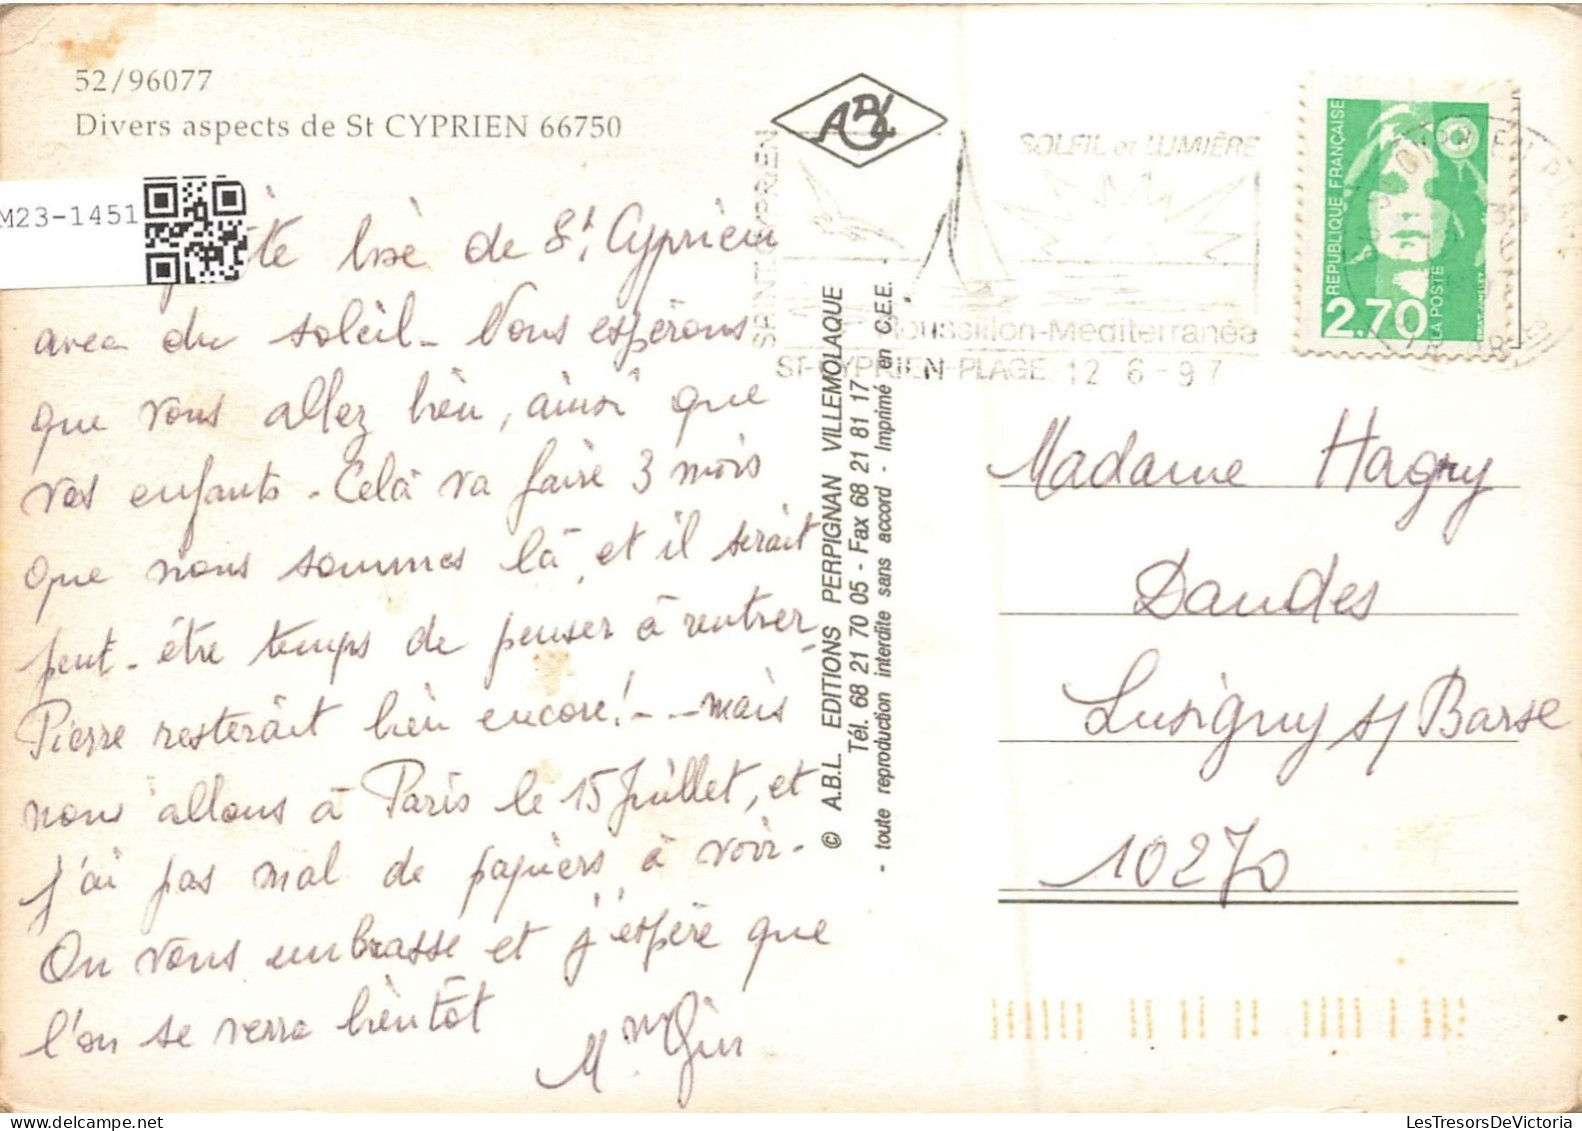 52/96077
Divers aspects de St CYPRIEN 66750
M23-1451
bise de St Cyprien
avec du soleil - Nous espérons
que vous allez bien, ainsi que
vos enfants - Celà va faire 3 mois
que nous sommes là, et il serait
peut-être temps de penser à rentrer -
Pierre resterait bien encore! - - mais
nous allons à Paris le 15 Juillet, et
j'ai pas mal de papiers à voir -
On vous embrasse et j'espère que
l'on se verra bientôt
ABL
© A.B.L. EDITIONS PERPIGNAN VILLEMOLAQUE
Tél. 68 21 70 05 - Fax 68 21 81 17
- toute reproduction interdite sans accord - Imprimé en C.E.E.
SAINT CYPRIEN
SOLEIL et LUMIÈRE
Roussillon-Méditerranée
ST-CYPRIEN-PLAGE 12 6 - 97
REPUBLIQUE FRANÇAISE
2.70
LA POSTE
Madame Hagry
Daudes
Lusigny s/ Barse
10270
LesTresorsDeVictoria